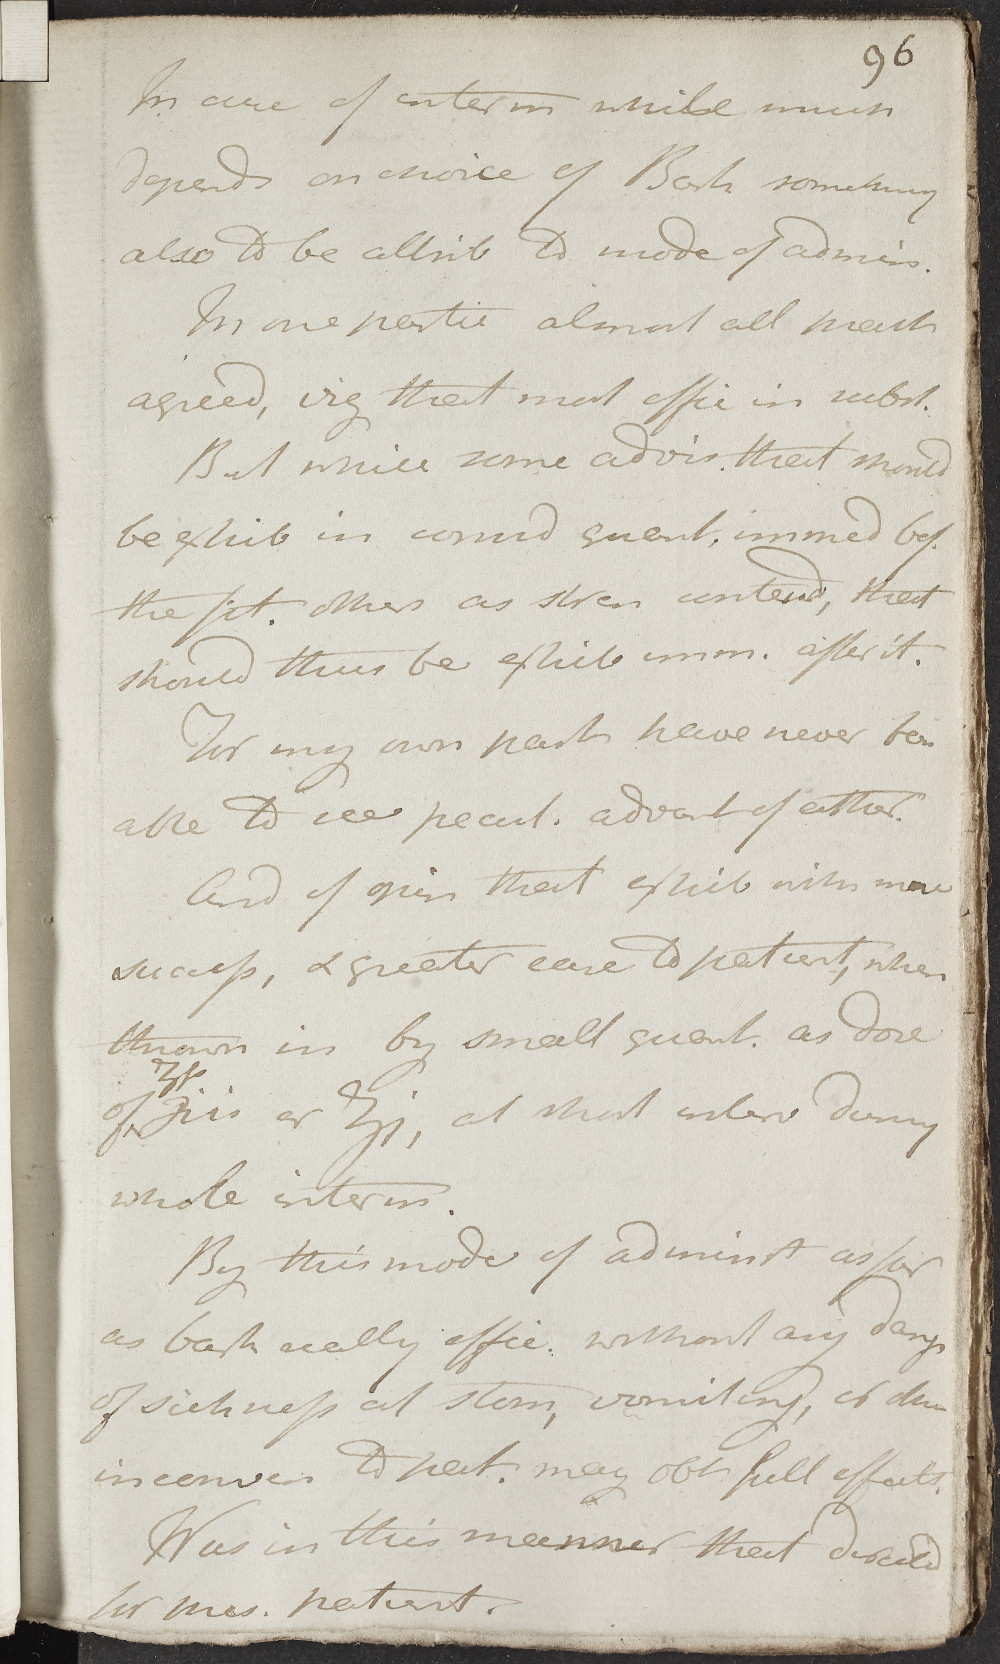 96
In cure of interm while much
depends on choice of Bark something
also to be attrib to mode of admin.
In one partic almost all pract
agreed, viz that most effic in subst.
But while some advis. that should
be exhib in consid quant. immed bef.
the fit. others as stren contend, that
should thus be exhib imm. after it.
For my own part have never been
able to see pecul. advant of either.
And of opin that exhib with more
success, & greater ease to patient, when
thrown in by small quant. as dose
ʒſs
of ʒiis or ʒj, at short interv during
whole interm.
By this mode of administ as far
as bark really effic. without any dang
of sickness at stom, vomiting, or
inconven to pat. may obt full effects.
Was in this manner that directed
for pres. patient.